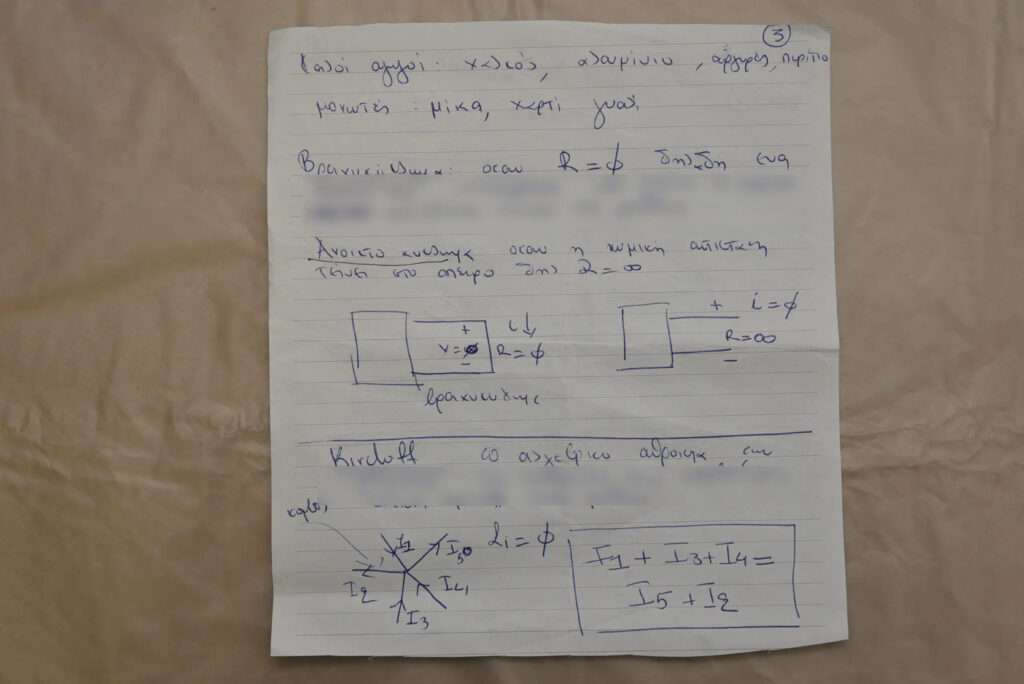 3
Καλοί αγωγοί: χαλκός, αλουμίνιο, άργυρος,
μονωτές: μίκα, χαρτί γυαλί
Βραχυκύκλωμα: οταν R=φ δηλαδη ενα
Ανοικτο κυκλωμα οταν η ωμικη αντισταση
τεινει στο απειρο δηλ R=∞
+ i=φ
+ i
V=φ R=φ R=∞
- -
βραχυκυκλωμα
Kirchoff το αλγεβρικο αθροισμα των
κομβος
I1 I5 Ii=φ
I1 + I3+I4=
I2 I4
I5+I2
I3